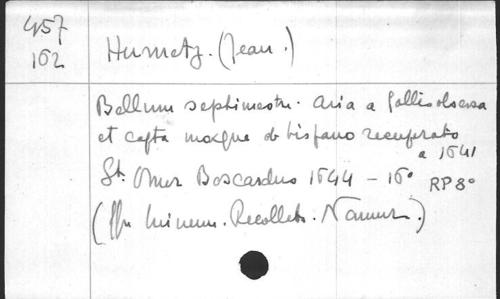 457
162
Humetz. (Jean.)
Bellum septimestre. Aria a Gallis obsessa
et capta moxque ab hispano recuperato
a 1641
St. Omer Boscardus 1644 - 16° RP 8°
(ffr mineurs. Recollets. Namur.)